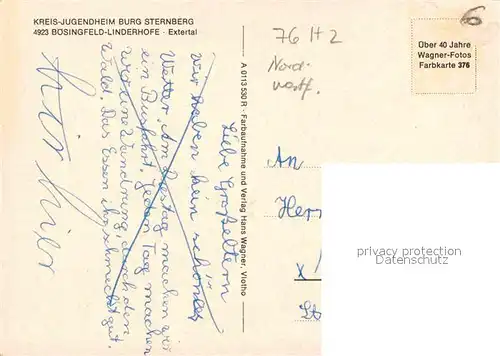 KREIS-JUGENDHEIM BURG STERNBERG
4923 BÖSINGFELD-LINDERHOFE · Extertal
76 H 2
Nord-
westf.
6
Über 40 Jahre
Wagner-Fotos
Farbkarte 376
A 0113 530 R · Farbaufnahme und Verlag Hans Wagner, Vlotho
Liebe Großeltern
Wir haben kein schönes
Wetter. Am Dienstag machen wir
ein Busfahrt. Jeden Tag machen
wir eine Wandrung, durch den
Wald. Das Essen ihr schmeckt gut.
An
Herr
privacy protection
Datenschutz